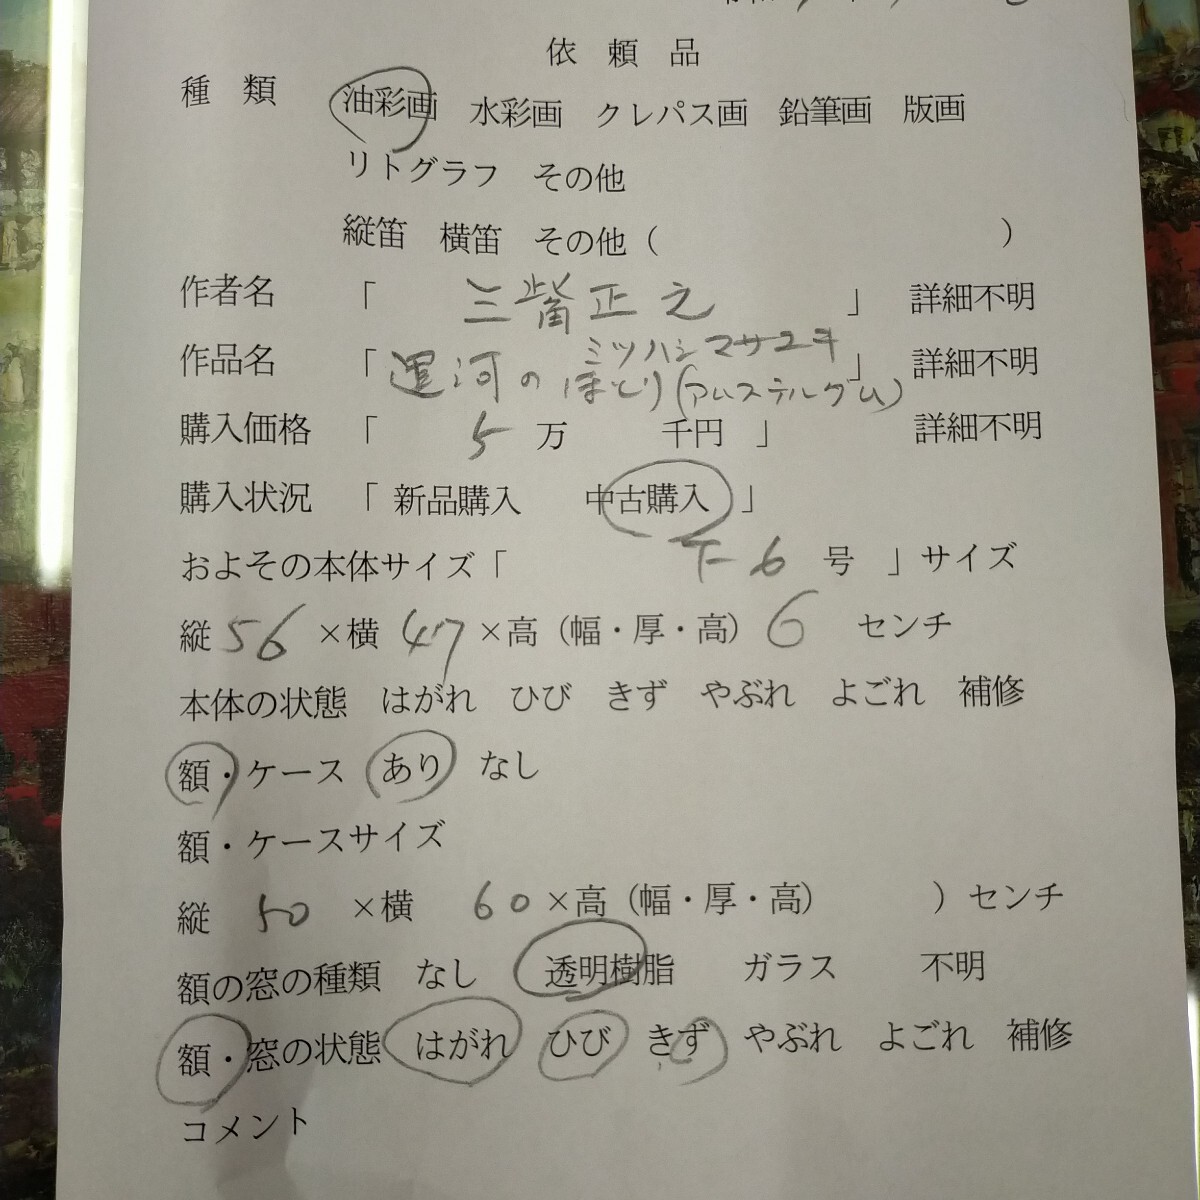 依頼品
種類 油彩画 水彩画 クレパス画 鉛筆画 版画
リトグラフ その他
縦笛 横笛 その他（ ）
作者名 「 三觜正之 」 詳細不明
ミツハシマサユキ
作品名 「 運河のほとり(アムステルダム) 」 詳細不明
購入価格 「 5 万 千円 」 詳細不明
購入状況 「 新品購入 中古購入 」
およその本体サイズ「 F-6 号 」サイズ
縦 56 ×横 47 ×高（幅・厚・高） 6 センチ
本体の状態 はがれ ひび きず やぶれ よごれ 補修
額・ケース あり なし
額・ケースサイズ
縦 50 ×横 60 ×高（幅・厚・高） ）センチ
額の窓の種類 なし 透明樹脂 ガラス 不明
額・窓の状態 はがれ ひび きず やぶれ よごれ 補修
コメント